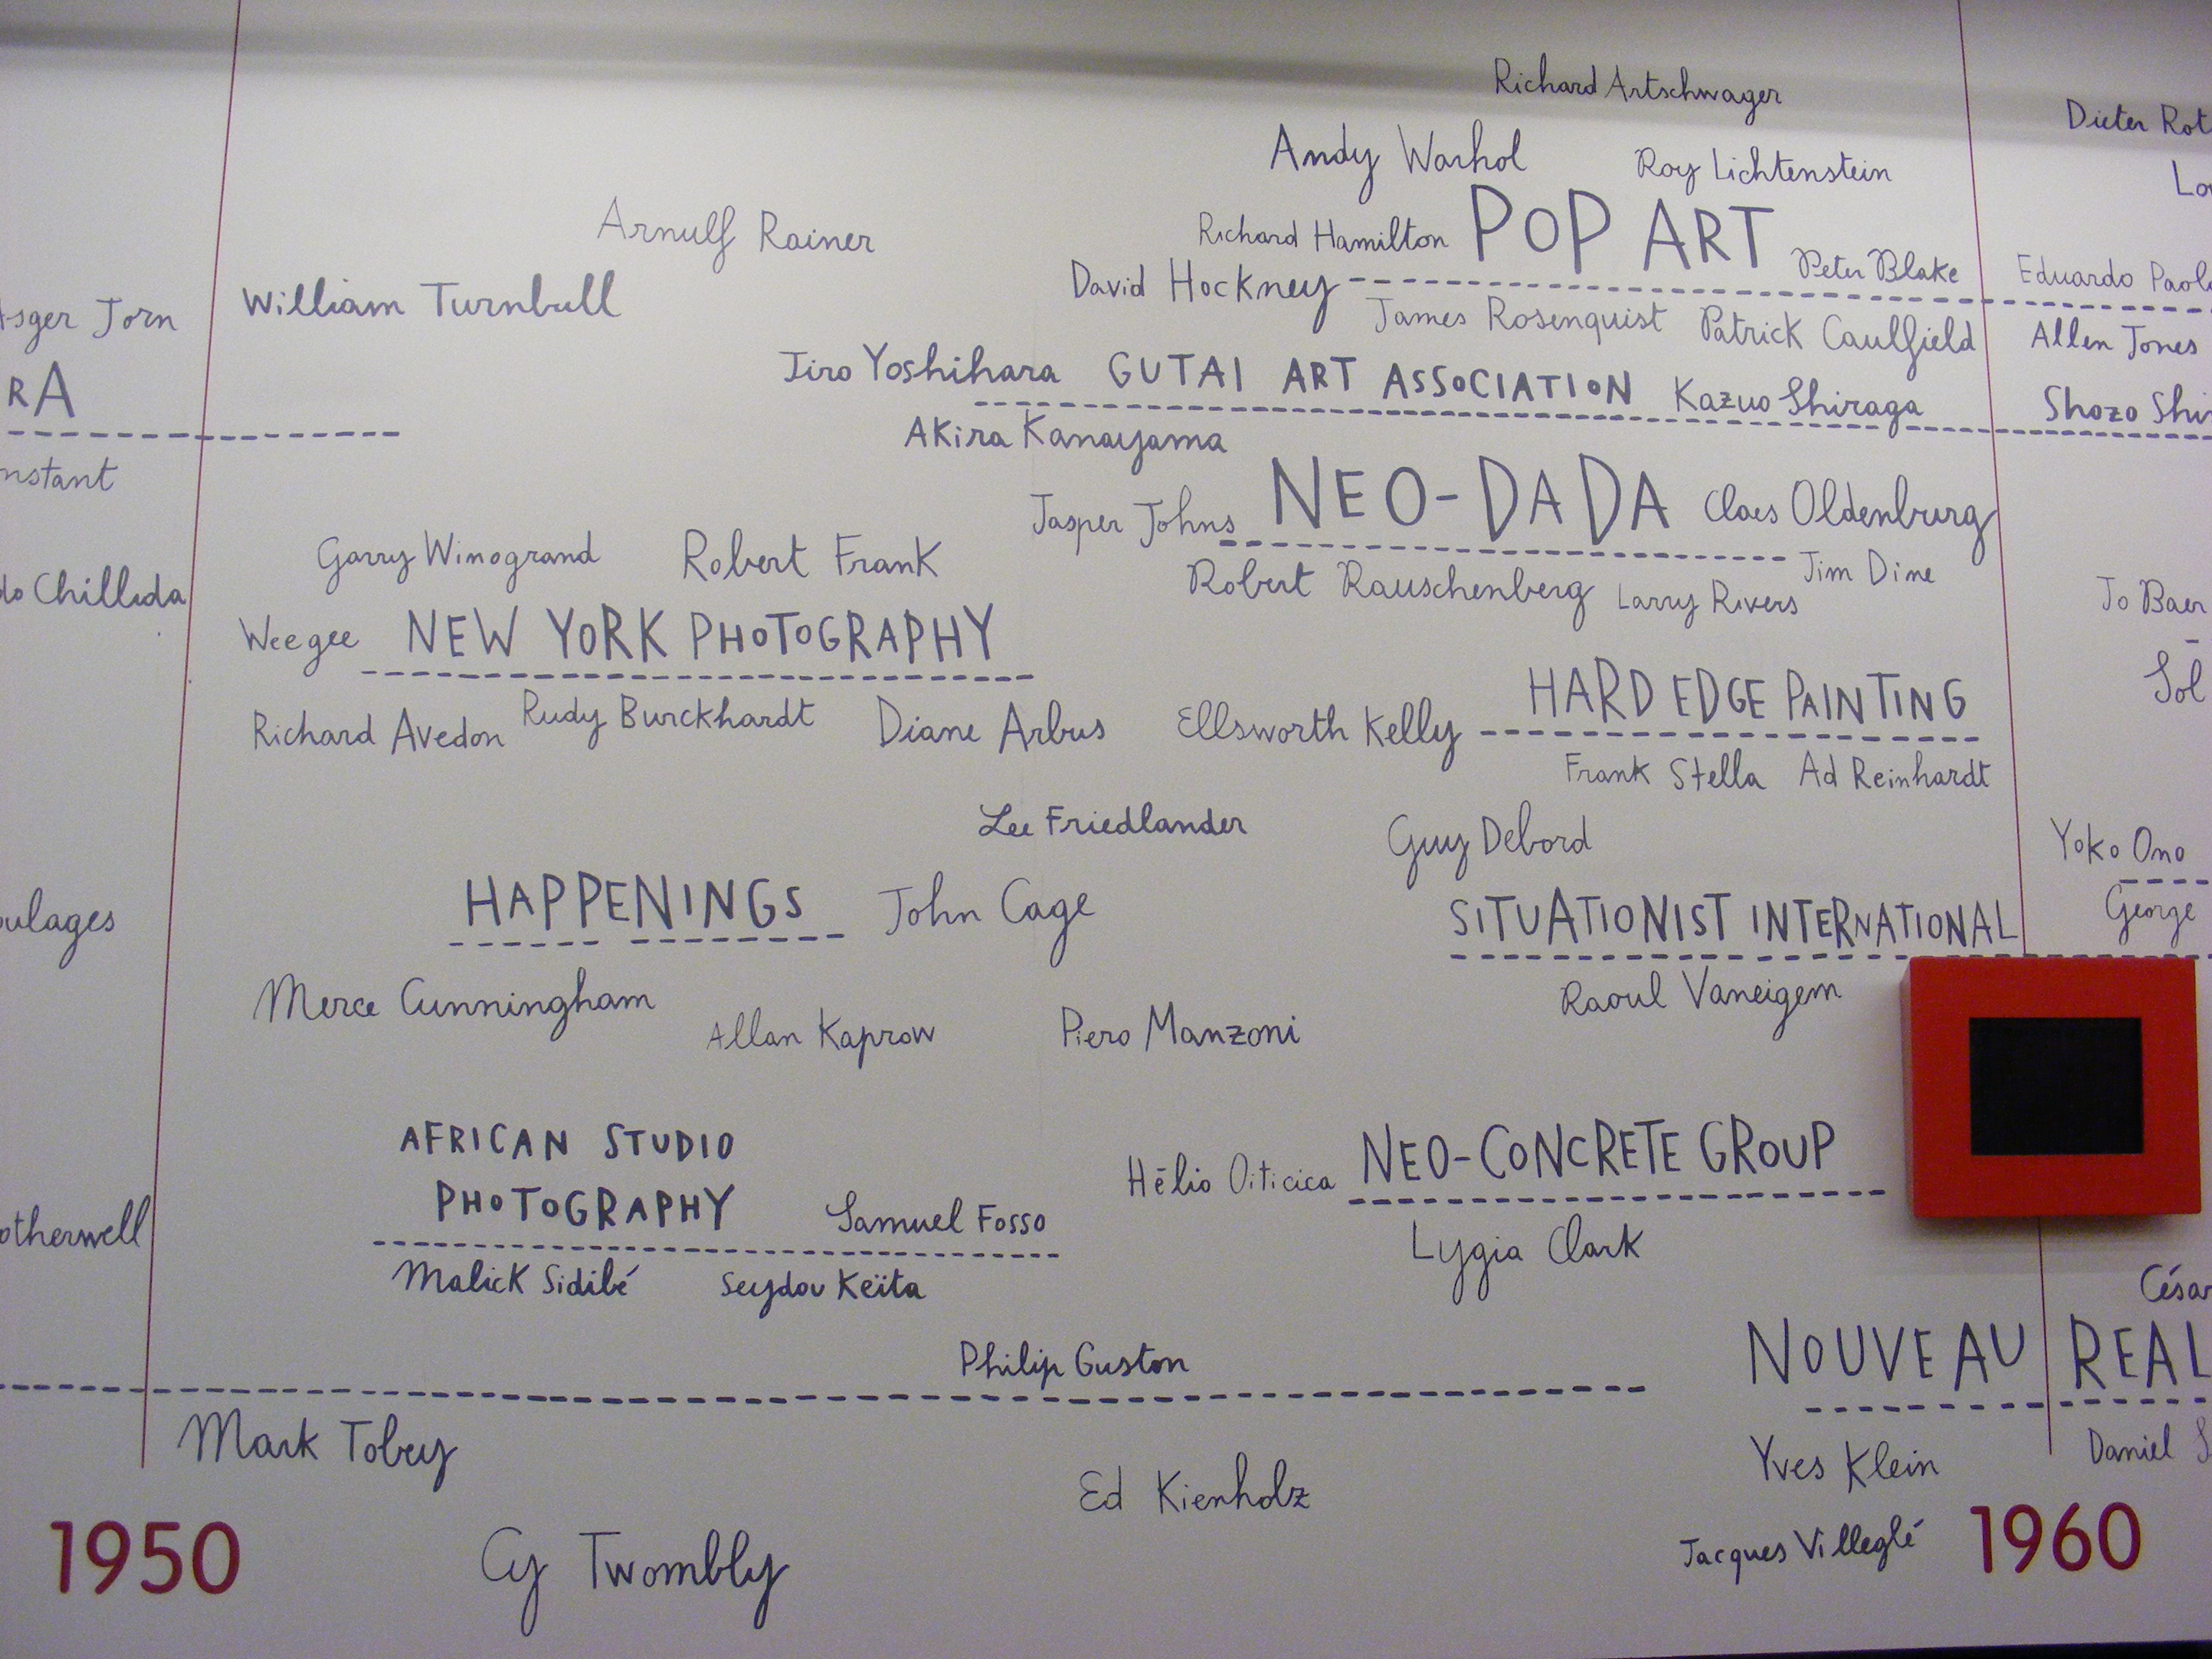 Richard Artschwager
Andy Warhol
Roy Lichtenstein
Dieter
Arnulf Rainer
Richard Hamilton
POP ART
Peter Blake
Eduardo
David Hockney
William Turnbull
James Rosenquist
Patrick Caulfield
Allen Jones
Asger Jorn
RA
Jiro Yoshihara
GUTAI ART ASSOCIATION
Kazuo Shiraga
Shozo
Akira Kanayama
Jasper Johns
NEO-DADA
Claes Oldenburg
Garry Winogrand
Robert Frank
Robert Rauschenberg
Larry Rivers
Jim Dine
Jo Baer
do Chillida
Weegee
NEW YORK PHOTOGRAPHY
HARD EDGE PAINTING
Sol
Richard Avedon
Rudy Burckhardt
Diane Arbus
Ellsworth Kelly
Frank Stella
Ad Reinhardt
Lee Friedlander
Guy Debord
Yoko Ono
HAPPENINGS
John Cage
SITUATIONIST INTERNATIONAL
George
oulages
Merce Cunningham
Allan Kaprow
Piero Manzoni
Raoul Vaneigem
AFRICAN STUDIO
PHOTOGRAPHY
Samuel Fosso
Hélio Oiticica
NEO-CONCRETE GROUP
otherwell
Lygia Clark
Malick Sidibé
Seydou Keïta
César
Philip Guston
NOUVEAU REAL
Mark Tobey
Yves Klein
Daniel
Ed Kienholz
1950
Cy Twombly
Jacques Villeglé
1960